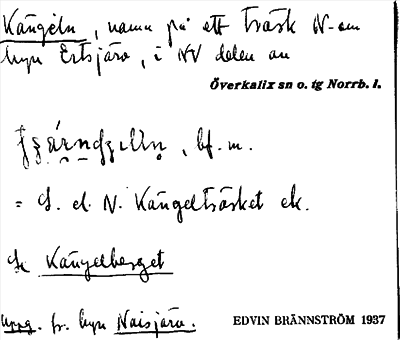 Kängeln, namn på ett träsk N-om
byn Ertsjärv, i NV delen av
Överkalix sn o. tg Norrb. l.
bf. m.
= S. el. N. Kängelträsket ek.
Se Kängelberget
Uppg. fr. byn Naisjärv.
EDVIN BRÄNNSTRÖM 1937